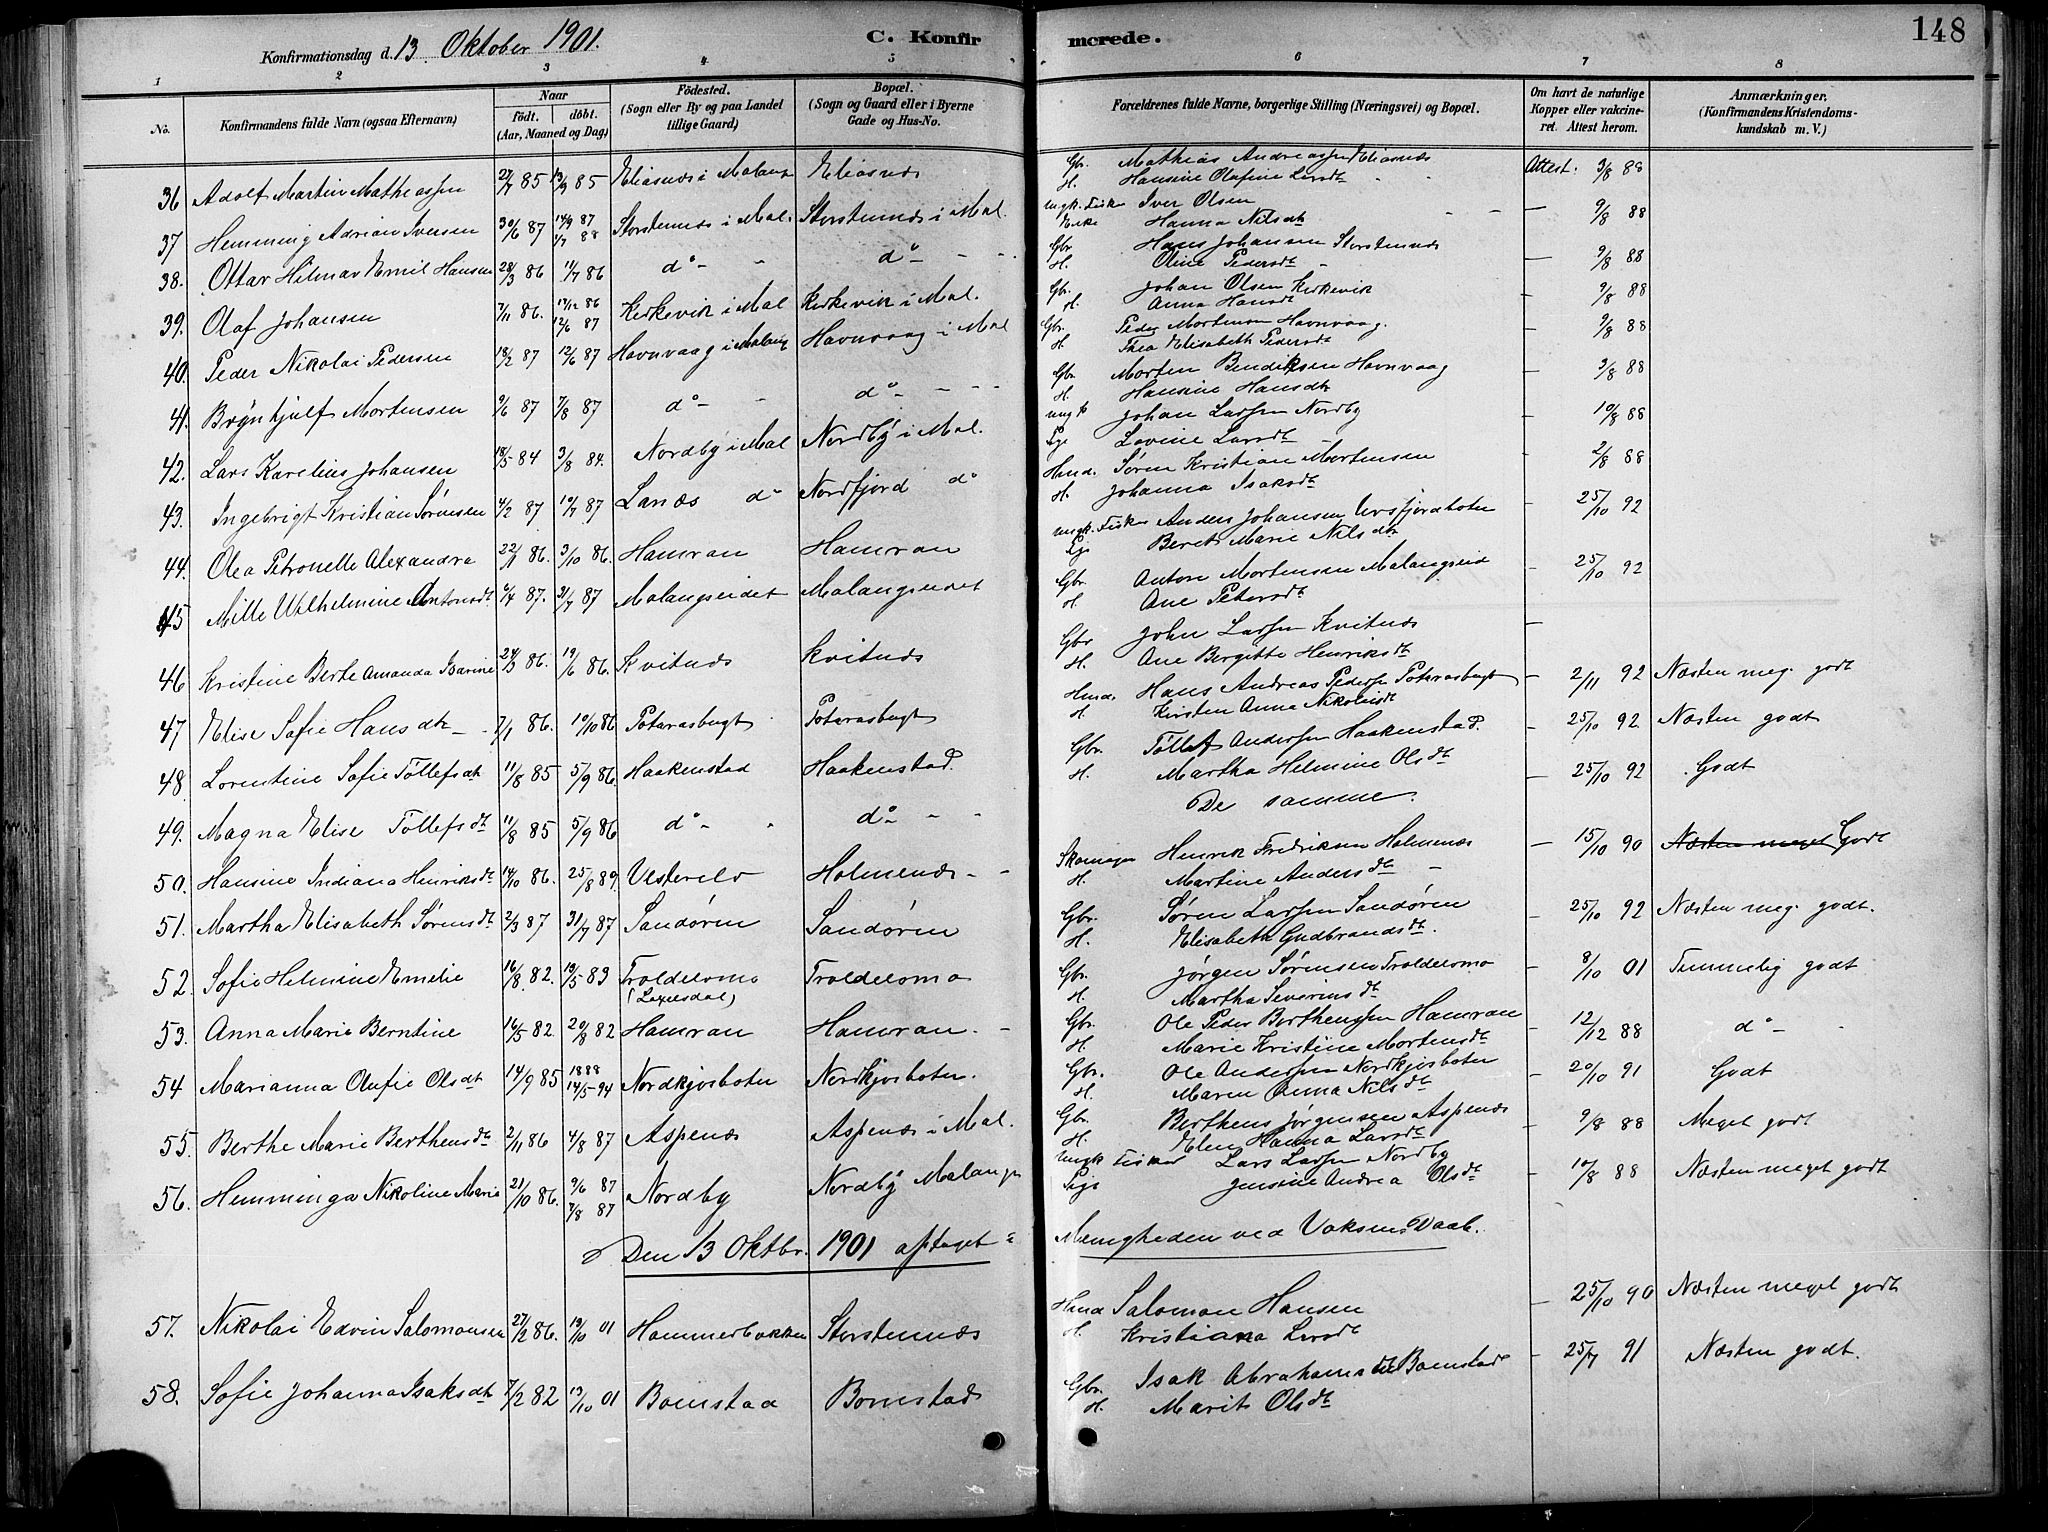 148
Konfirmationsdag d. 13. Oktober 1901.
C. Konfirmerede.
1 2 3 4 5 6 7 8
No. Konfirmandens fulde Navn (ogsaa Efternavn) Naar födt. döbt. (Aar, Maaned og Dag) Födested. (Sogn eller By og paa Landet tillige Gaard) Bopæl. (Sogn og Gaard eller i Byerne Gade og Hus-No. Forældrenes fulde Navne, borgerlige Stilling (Næringsvei) og Bopæl. Om havt de naturlige Kopper eller vakcineret. Attest herom. Anmærkninger. (Konfirmandens Kristendomskundskab m. V.)
36 Adolf Martin Mathiassen 27/7 85 13/9 85 Eliasnes i Malang Eliasnes Gbr. Mathias Andreassen Eliasnes Attest. 3/8 88
H. Hansine Olafine Larsdt
37 Hemming Adrian Iversen 30/6 87 14/9 87 1/7 88 Storstennes i Mal. Storstennes i Mal. ungk. Fisker Iver Olsen 9/8 88
Enke Hanna Nilsdt
38. Ottar Hilmar Emil Hansen 28/3 86 11/7 86 do do Gbr Hans Johansen Storstennes — 9/8 88
H. Oline Pedersdt
39. Olaf Johansen 7/11 86. 19/12 86 12/6 87 Kirkevik i Mal Kirkevik i Mal. Gbr. Johan Olsen Kirkevik — 9/8 88
H Anna Hansdt
40. Peder Nikolai Pedersen 18/2 87 12/6 87 Havnvaag i Malang Havnvaag i Mal Gbr. Peder Mortensen Havnvaag. — 9/8 88
H. Thea Elisabeth Pedersdt
41. Brynhjulf Mortensen 9/6 87 7/8 87 do do Gbr. Morten Bendiksen Havnvaag — 3/8 88
H. Hansine Hansdt
42. Lars Karelius Johansen 18/5 84 3/8 84. Nordby i Mal Nordby i Mal. ungk Johan Larsen Nordby — 10/8 88
Pge Lovine Larsdt
43. Ingebrigt Kristian Sørensen 4/2 87 10/7 87 Lanæs do Nordfjord do Hmd. Søren Kristian Mortensen — 2/8 88
H. Johanna Isaksdt
44. Olea Petronelle Alexandra 22/1 86. 3/10 86. Hamran Hamran ungk. Fisker Anders Johansen Ursfjordboten — 25/10 92
Pge Beret Marie Nilsdt
45 Mille Wilhelmine Antonsdt 9/4 87. 31/7 87 Malangseidet Malangseidet Gbr. Anton Mortensen Malangseid — 25/10 92
H. Ane Petersdt
46 Kristine Berte Amanda Isarine 24/3 86. 19/6 86. Kvitnes Kvitnes Gbr John Larsen Kvitnes —
H. Ane Bergitte Henriksdt
47 Elise Sofie Hansdt 7/1 86. 10/10 86 Potarasbugt Potarasbugt Hmd. Hans Andreas Pedersen Potarasbugt — 2/11 92 Næsten meg. godt
H. Kirsten Anna Nikolaisdt
48. Lorentine Sofie Tollefsdt 11/8 85 5/9 86. Haakenstad Haakenstad. Gbr. Tollef Andersen Haakenstad. — 25/10 92 Næsten godt
H. Martha Helmine Olsdt
49. Magna Elise Tollefsdt 11/8 85 5/9 86 do do De samme. — 25/10 92 Godt
50. Hansine Indiana Henriksdt 14/10 86. 25/8 89. Vesterelv Holmenes Skomager Henrik Fredriksen Holmenæs — 15/10 90 Næsten meget Godt
H. Martine Andersdt
51. Martha Elisabeth Sørensdt 2/3 87 31/7 87 Sandøren Sandøren Gbr. Søren Larsen Sandøren — 25/10 92 Næsten meg. godt.
H. Elisabeth Gudbrandsdt.
52. Sofie Helmine Emelie 16/8 82. 19/5 83 Troldeloma (Laxesdal) Troldeloma Gbr. Jørgen Sørensen Troldeloma — 8/10 01 Temmelig godt
H. Martha Severinsdt
53. Anna Marie Berntine 16/5 82 20/8 82 Hamran Hamran. Gbr. Ole Peder Berthenssen Hamran — 12/12 88 do
H. Marie Kristine Mortensdt
54 Marianna Olufie Olsdt 14/9 85 1888 14/5 94 Nordkjosboten Nordkjosboten. Gbr. Ole Andersen Nordkjosboten — 20/10 91 Godt
H. Maren Anna Nilsdt
55. Berthe Marie Berthensdt 2/11 86 4/8 87 Aspenes Aspenes i Mal. Gbr. Berthens Jørgensen Aspenes — 9/8 88 Meget godt
H. Elen Hanna Larsdt
56. Hemminga Nikoline Marie 21/10 86. 9/6 87 7/8 87 Nordby Nordby Malangen ungk Fisker Lars Larsen Nordby — 10/8 88 Næsten meget godt
Pige Jensine Andrea Olsdt
Den 13 Oktbr. 1901 optaget i Menigheden ved Voksen Daab.
57. Nikolai Edvin Salomonsen 27/2 86. 13/10 01 Hammerbakken Storstennes Hmd Salomon Hansen — 25/10 90 Næsten meget godt
H. Kristiana Larsdt
58. Sofie Johanna Isaksdt 7/2 82 13/10 01 Bomstad Bomstad Gbr. Isak Abrahams Bomstad — 25/7 91 Næsten godt.
H. Marit Olsdt